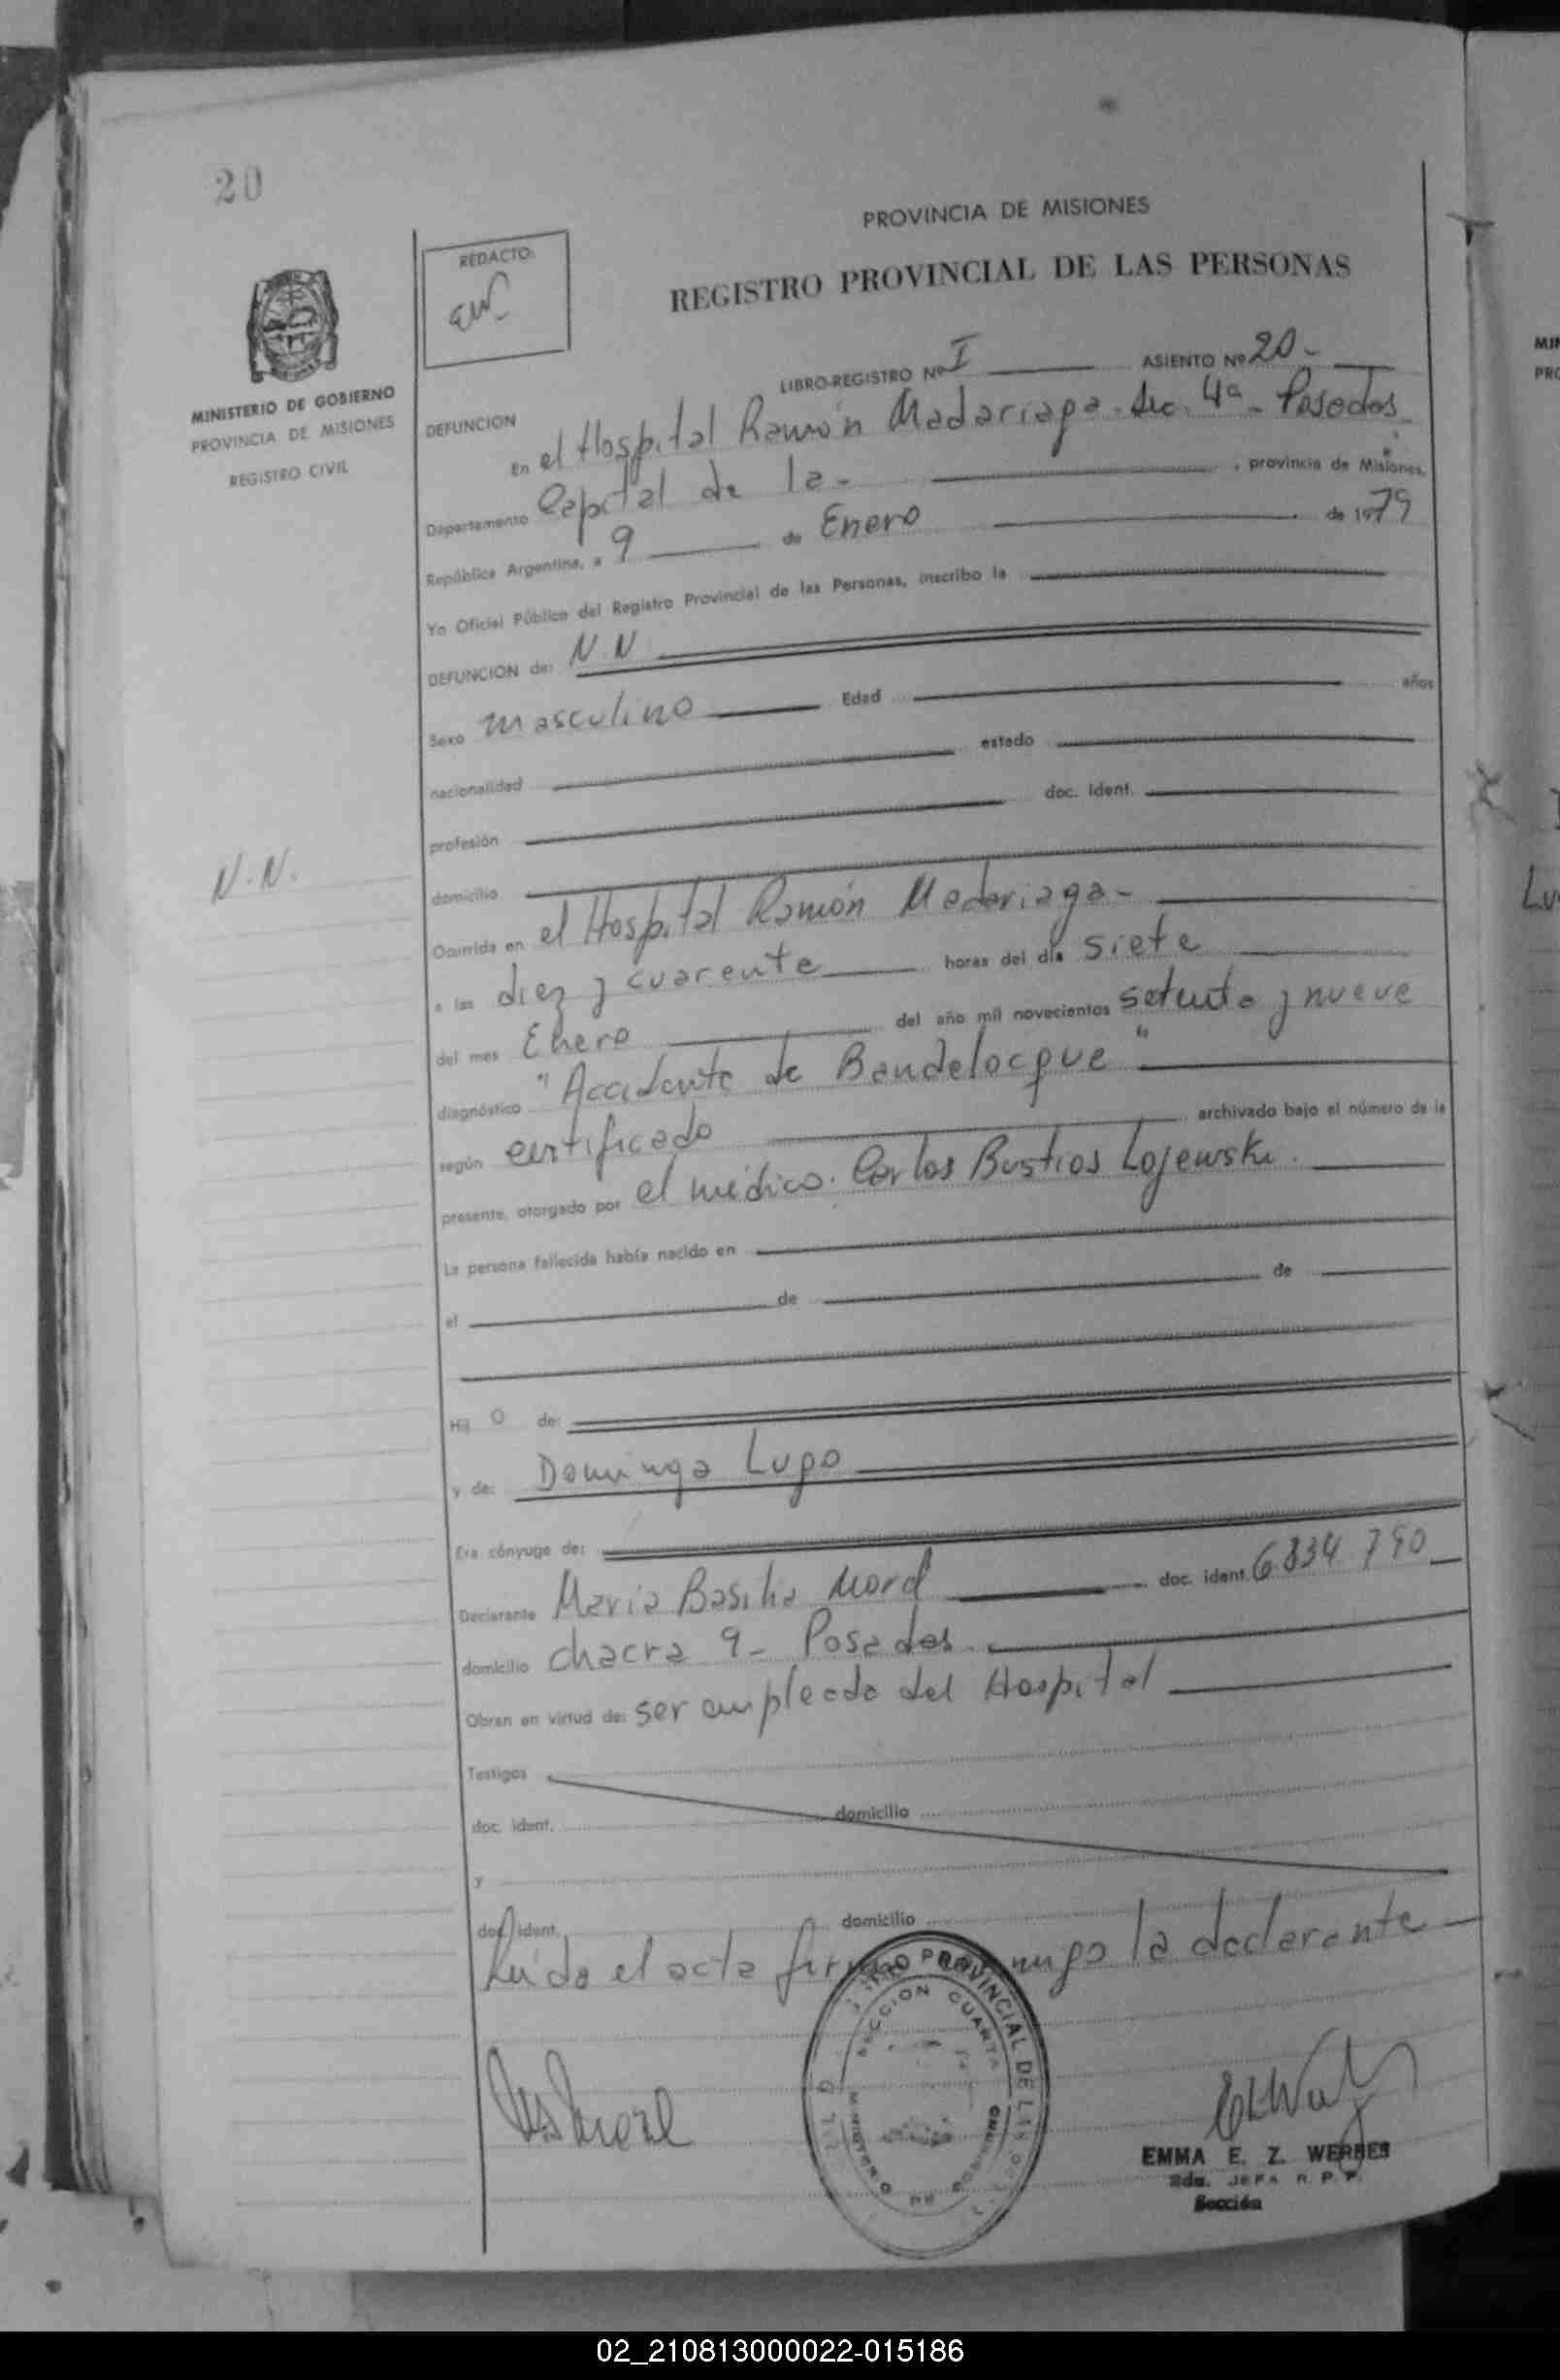 20
PROVINCIA DE MISIONES
REDACTO:
EW
REGISTRO PROVINCIAL DE LAS PERSONAS
MINISTERIO DE GOBIERNO
PROVINCIA DE MISIONES
REGISTRO CIVIL
LIBRO-REGISTRO Nº I ASIENTO Nº 20-
DEFUNCION
En el Hospital Ramón Madariaga. Sec. 4ª - Posadas
Departamento Capital de la - , provincia de Misiones,
República Argentina, a 9 de Enero de 1979
Yo Oficial Público del Registro Provincial de las Personas, inscribo la
DEFUNCION de: N.N
Sexo masculino Edad años
nacionalidad estado
profesión doc. Ident.
N.N.
domicilio
Ocurrida en el Hospital Ramón Madariaga-
a las diez y cuarenta horas del día siete
del mes Enero del año mil novecientos setenta y nueve
diagnóstico "Accidente de Baudelocque"
según certificado archivado bajo el número de la
presente, otorgado por el médico. Carlos Bustios Lojewski.
La persona fallecida había nacido en
el de de
Hij o de:
y de: Dominga Lugo
Era cónyuge de:
Declarante María Basilia Morel doc. ident. 6.834 790
domicilio chacra 9- Posadas
Obran en virtud de: ser empleada del Hospital
Testigos
doc. ident. domicilio
y
doc. ident. domicilio
Leída el acta firma conmigo la declarante
REGISTRO PROVINCIAL DE LAS
SECCION CUARTA
EMMA E. Z. WERNER
2da. JEFA R. P. P.
Sección
02_210813000022-015186